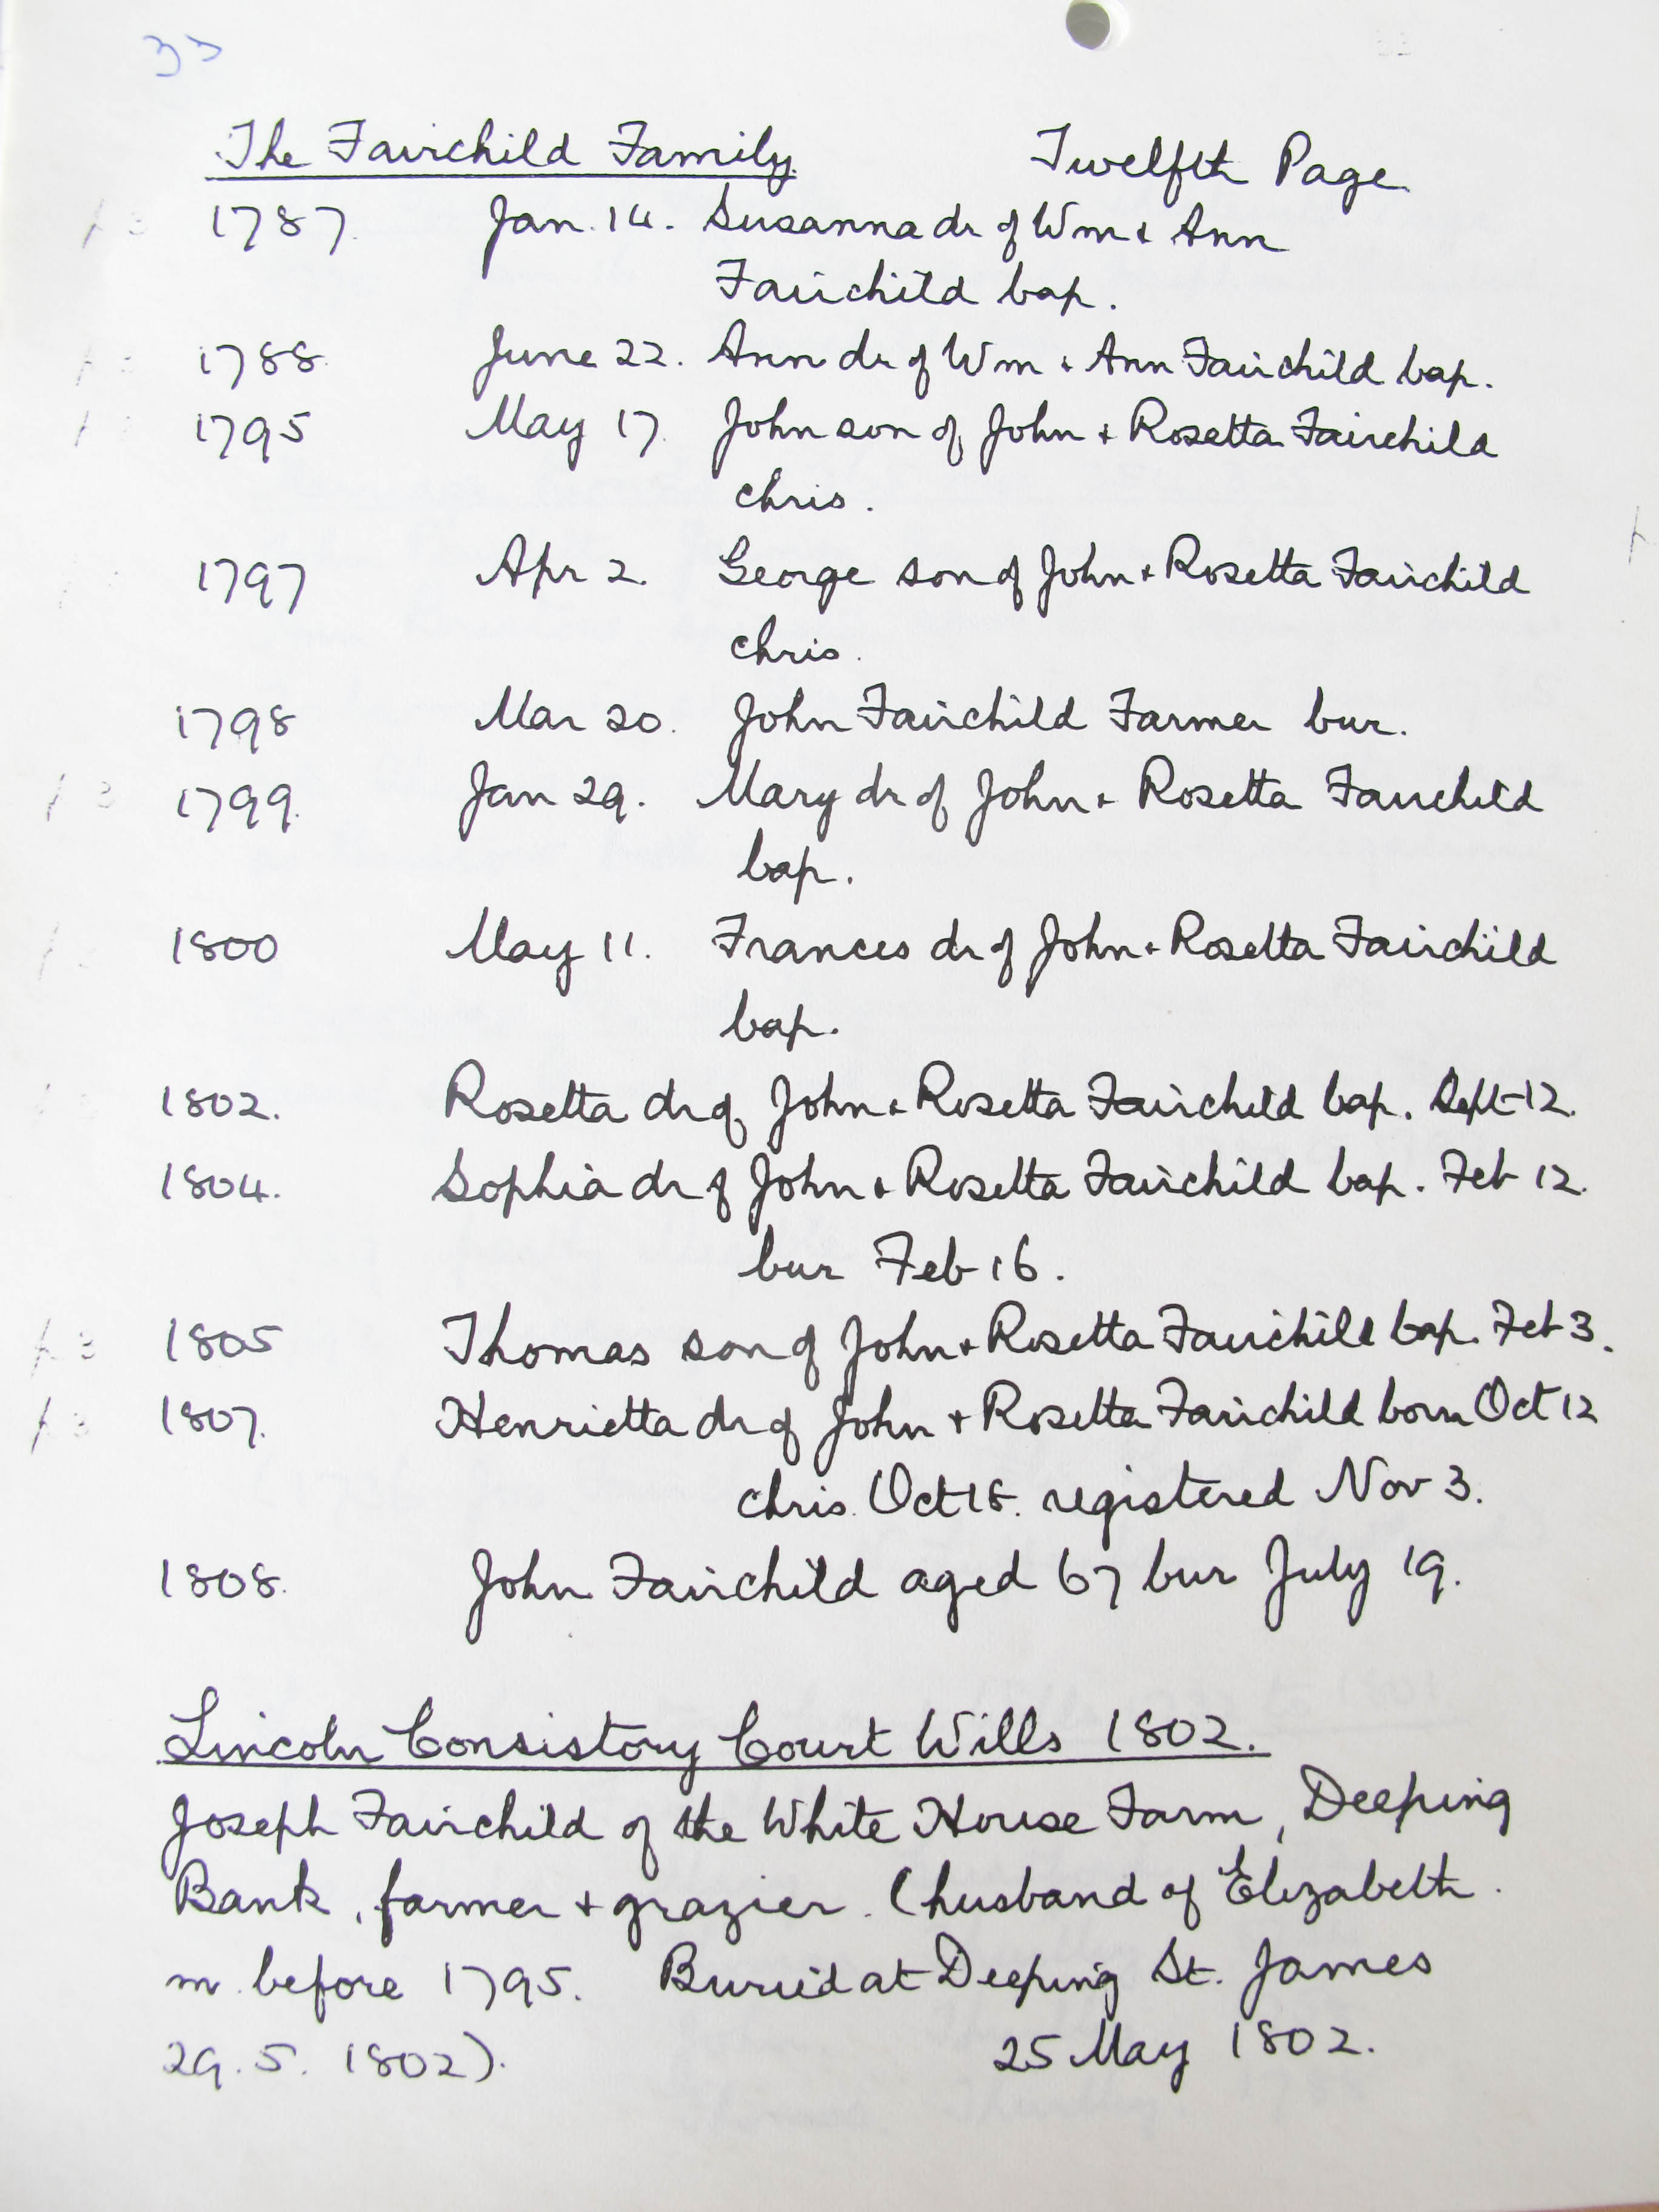 33
The Fairchild Family Twelfth Page
1787. Jan. 14. Susanna dr of Wm & Ann
Fairchild bap.
1788. June 22. Ann dr of Wm & Ann Fairchild bap.
1795 May 17. John son of John + Rosetta Fairchild
chris.
1797 Apr 2. George son of John + Rosetta Fairchild
chris.
1798 Mar 20. John Fairchild Farmer bur.
1799. Jan 29. Mary dr of John + Rosetta Fairchild
bap.
1800 May 11. Frances dr of John + Rosetta Fairchild
bap.
1802. Rosetta dr of John + Rosetta Fairchild bap. Sept 12.
1804. Sophia dr of John + Rosetta Fairchild bap. Feb 12.
bur Feb 16.
1805 Thomas son of John + Rosetta Fairchild bap. Feb 3.
1807. Henrietta dr of John + Rosetta Fairchild born Oct 12
chris. Oct 18. registered Nov 3.
1808. John Fairchild aged 67 bur July 19.
Lincoln Consistory Court Wills 1802.
Joseph Fairchild of the White House Farm, Deeping
Bank, farmer + grazier. (husband of Elizabeth.
m. before 1795. Buried at Deeping St. James
29. 5. 1802). 25 May 1802.